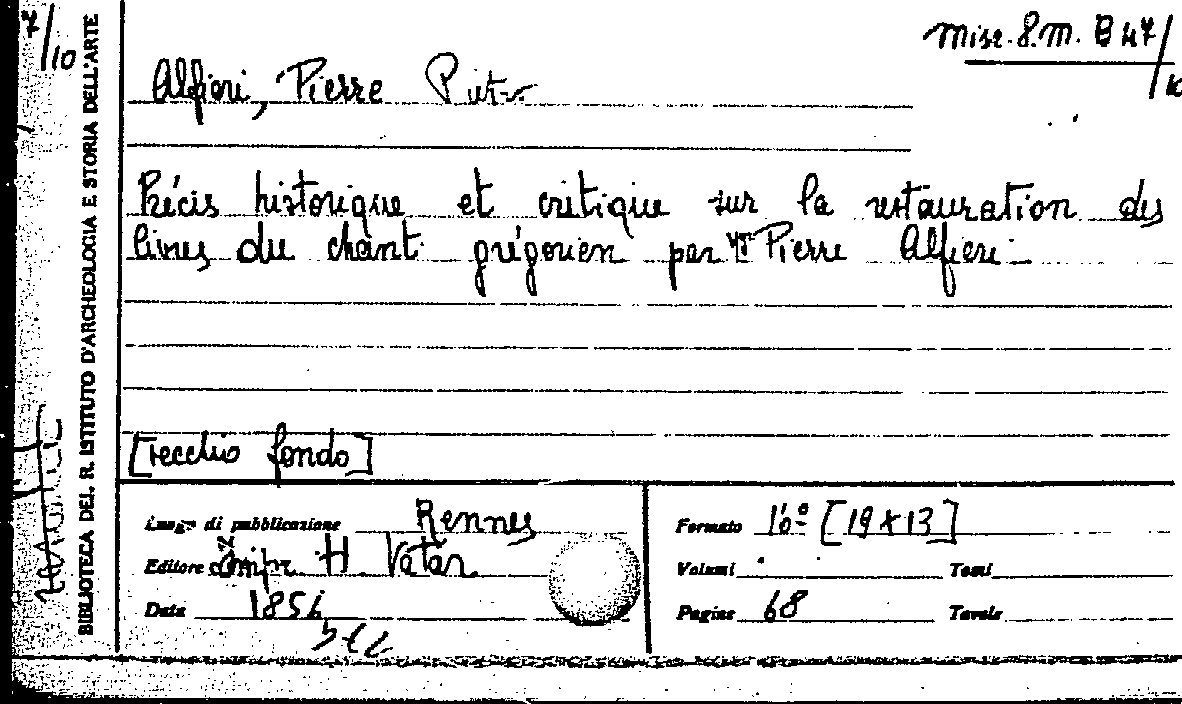 7/10
BIBLIOTECA DEL R. ISTITUTO D'ARCHEOLOGIA E STORIA DELL'ARTE
Misc. 8. m. B 47/10
Alfieri, Pierre
Précis historique et critique sur la restauration des
livres du chant grégorien par Mr Pierre Alfieri
[vecchio fondo]
Luogo di pubblicazione Rennes
Editore impr. H Vatar
Data 1856
Formato 16º [19 x 13]
Volumi
Tomi
Pagine 68
Tavole